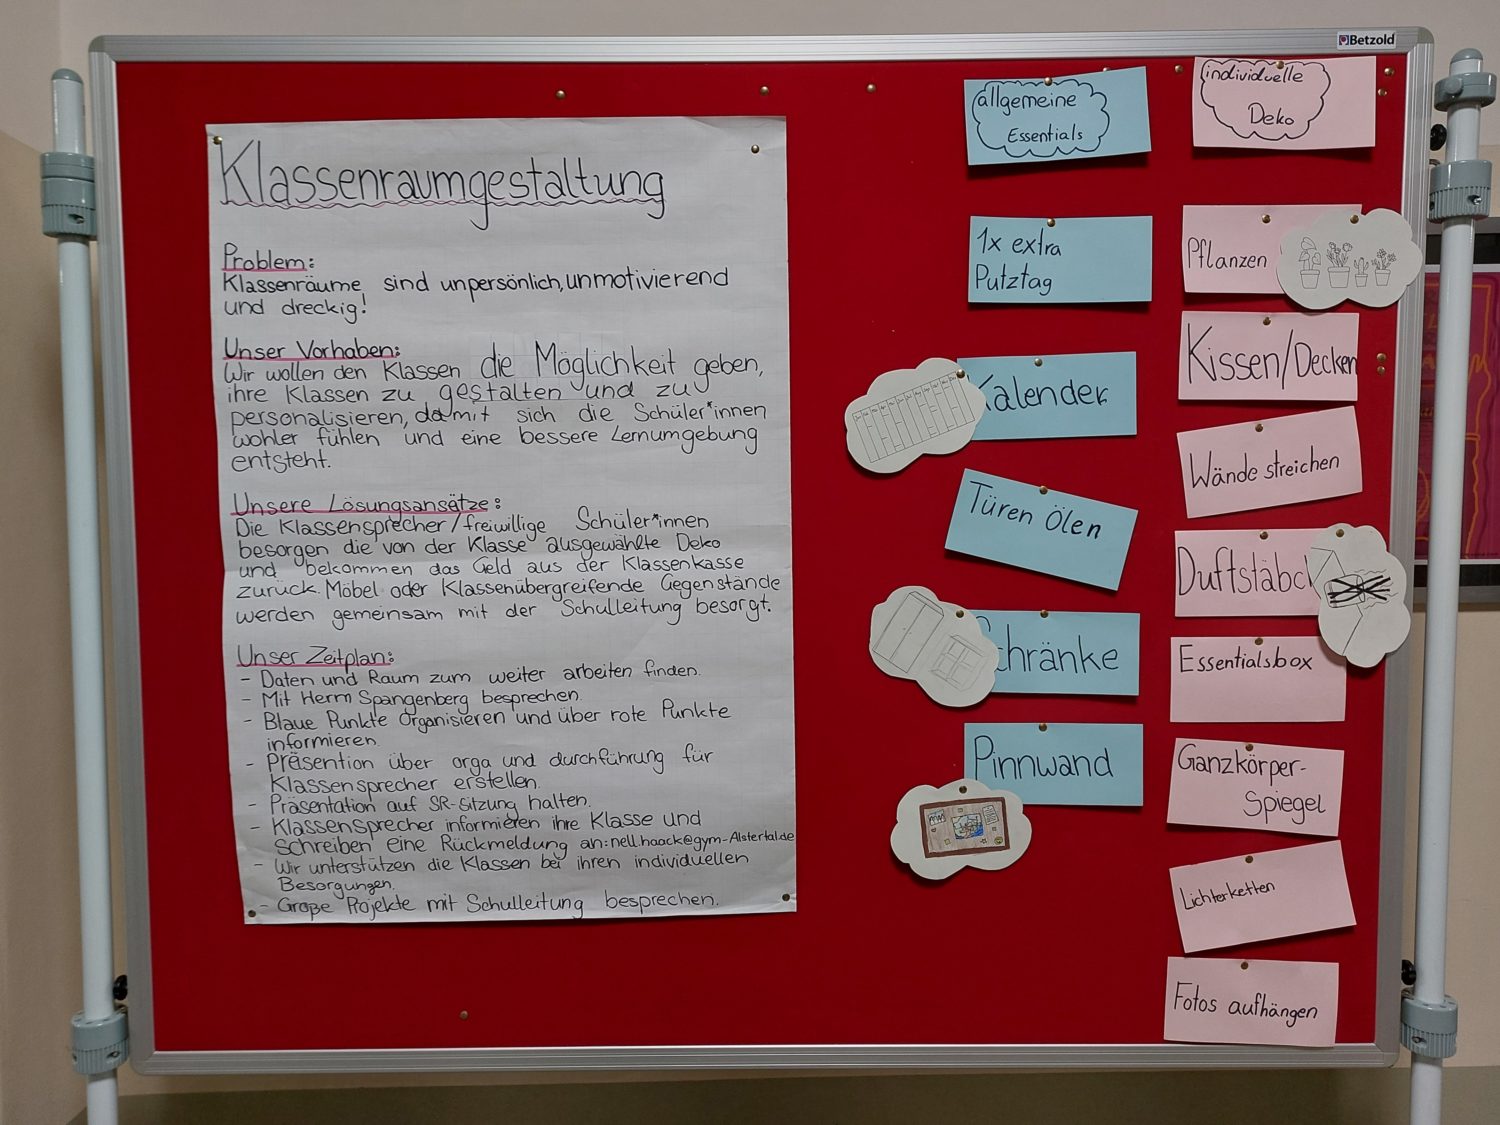 Betzold
Klassenraumgestaltung
Problem:
Klassenräume sind unpersönlich, unmotivierend
und dreckig!
Unser Vorhaben:
Wir wollen den Klassen die Möglichkeit geben,
ihre Klassen zu gestalten und zu
personalisieren, damit sich die Schüler*innen
wohler fühlen und eine bessere Lernumgebung
entsteht.
Unsere Lösungsansätze:
Die Klassensprecher/freiwillige Schüler*innen
besorgen die von der Klasse ausgewählte Deko
und bekommen das Geld aus der Klassenkasse
zurück. Möbel oder Klassenübergreifende Gegenstände
werden gemeinsam mit der Schulleitung besorgt.
Unser Zeitplan:
- Daten und Raum zum weiter arbeiten finden.
- Mit Herrn Spangenberg besprechen.
- Blaue Punkte organisieren und über rote Punkte
informieren.
- Präsention über orga und durchführung für
Klassensprecher erstellen.
- Präsentation auf SR-Sitzung halten.
- Klassensprecher informieren ihre Klasse und
schreiben eine Rückmeldung an: nell.haack@gym-Alstertal.de
- Wir unterstützen die Klassen bei ihren individuellen
Besorgungen.
- Große Projekte mit Schulleitung besprechen.
allgemeine
Essentials
1x extra
Putztag
Kalender
Türen Ölen
Schränke
Pinnwand
individuelle
Deko
Pflanzen
Kissen/Decken
Wände streichen
Duftstäbc
Essentialsbox
Ganzkörper-
Spiegel
Lichterketten
Fotos aufhängen